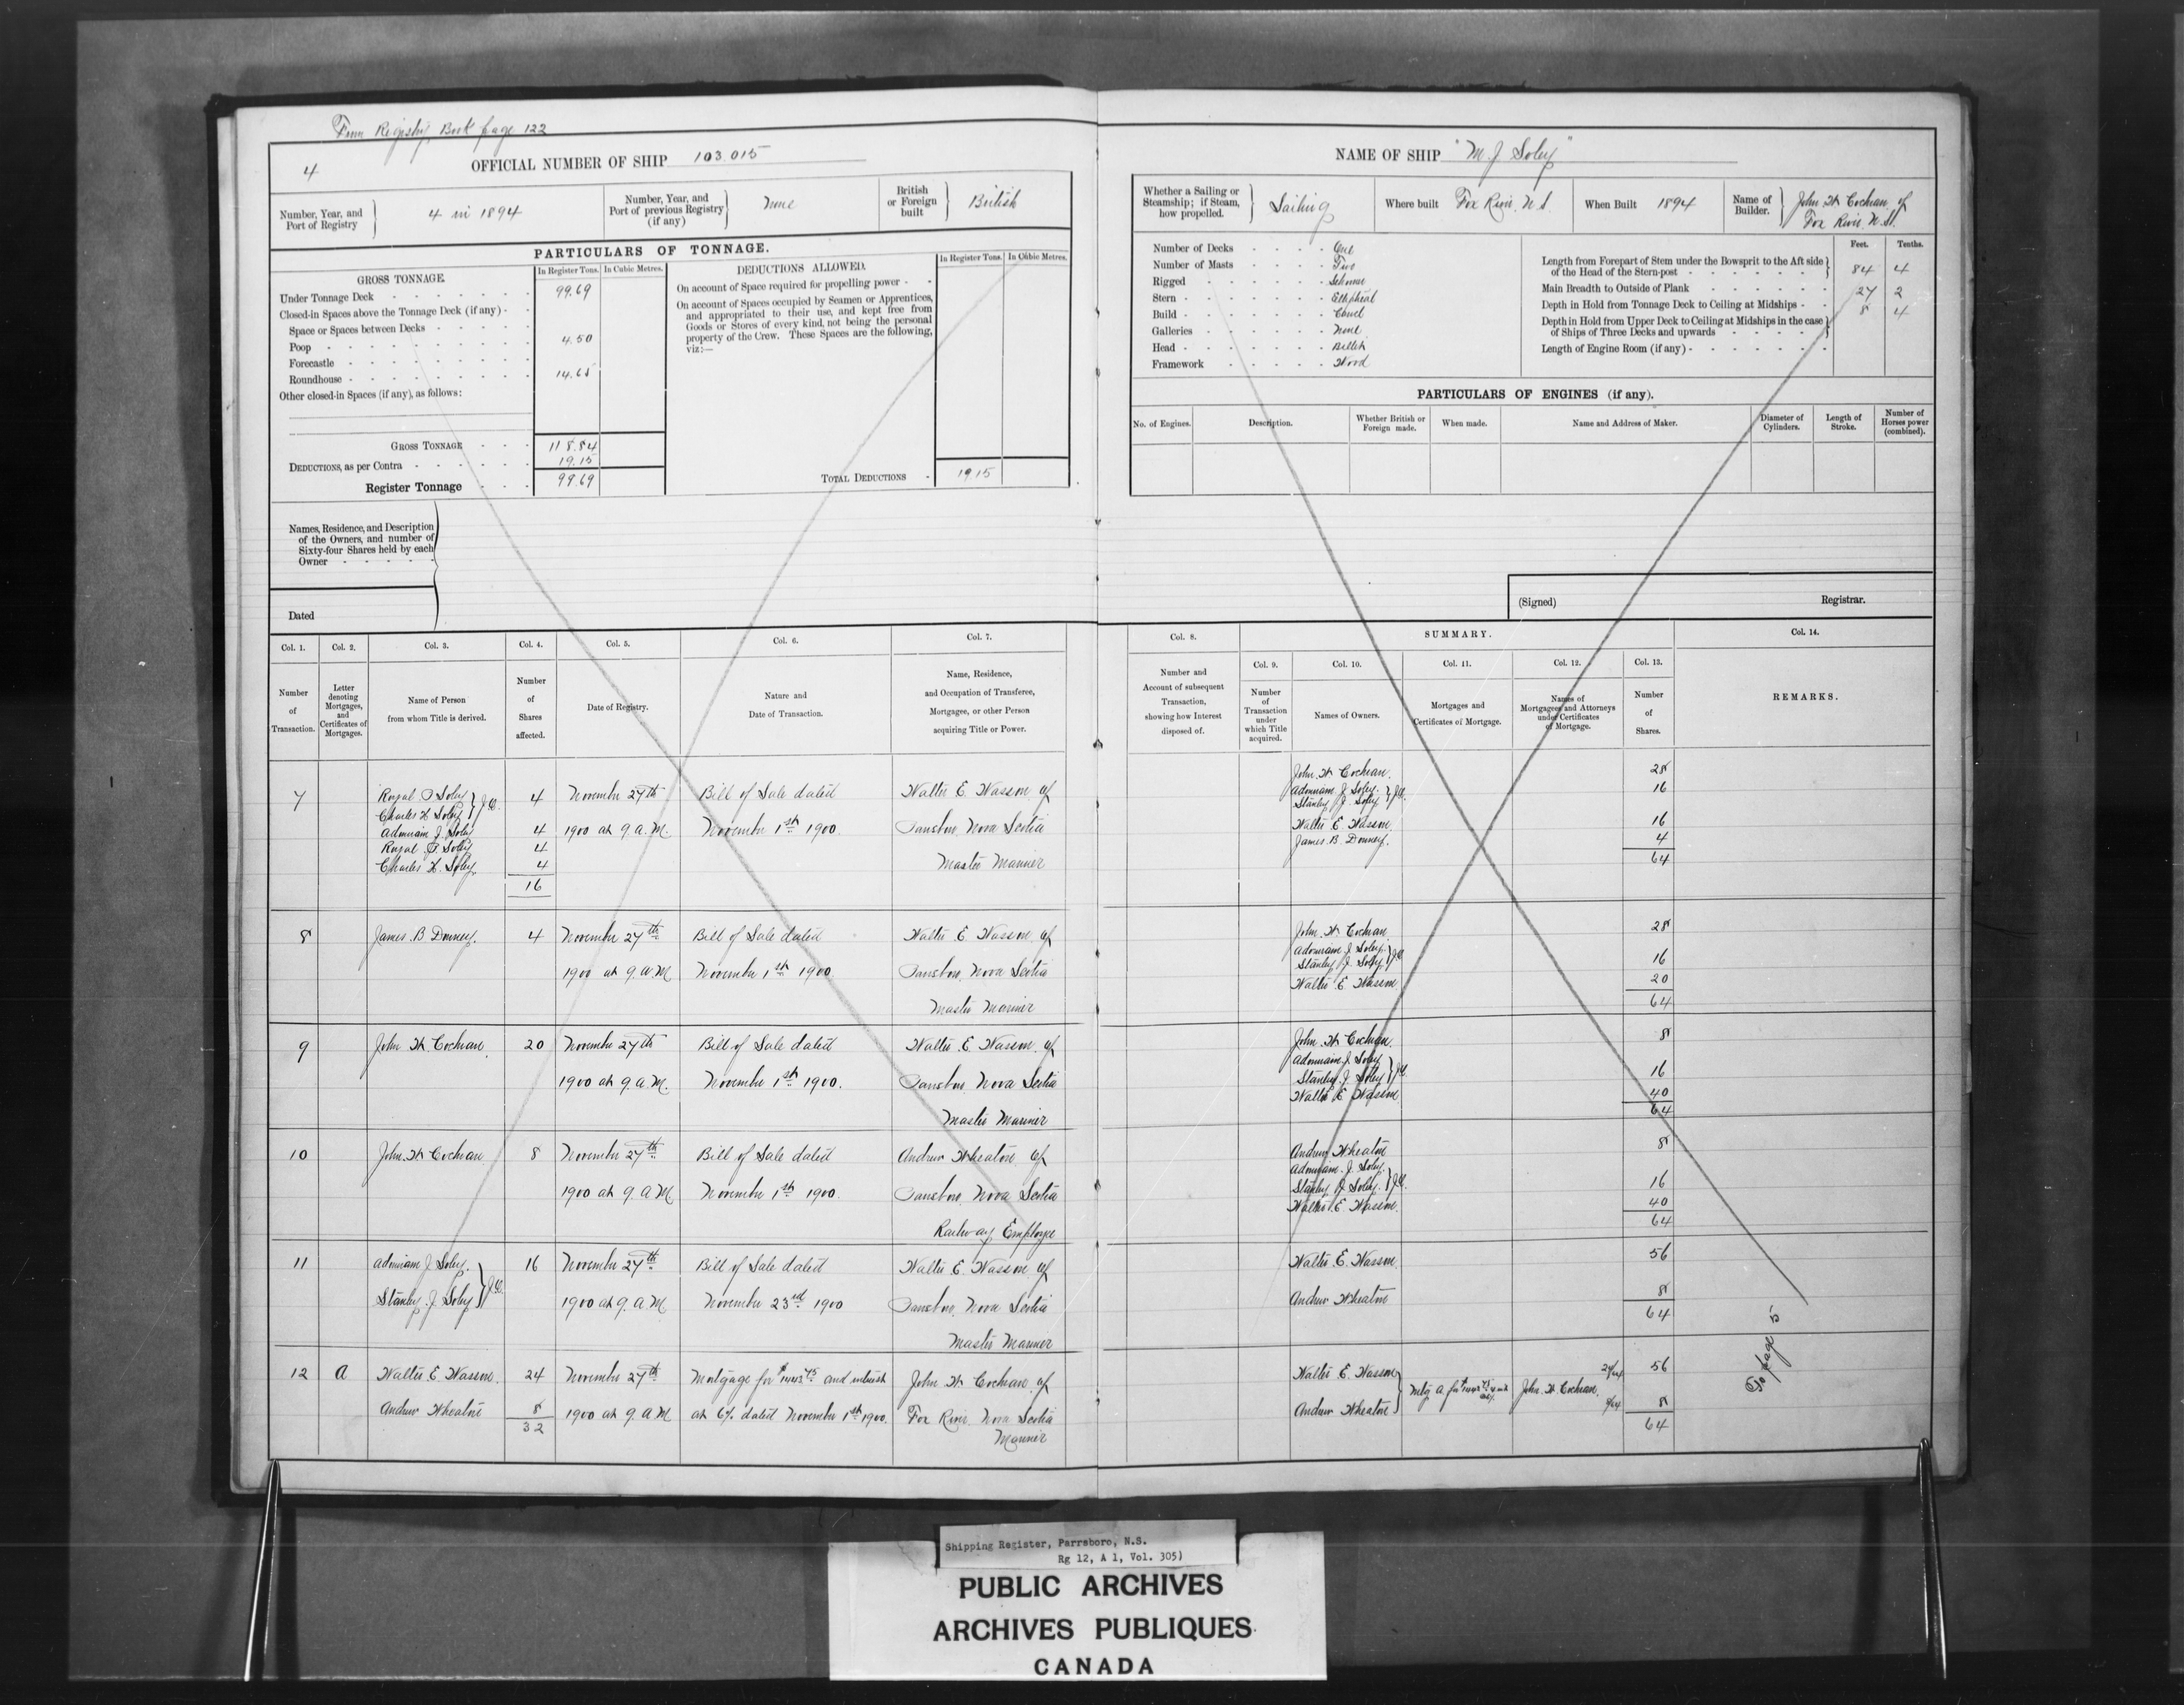 From Registry Book page 122
4
OFFICIAL NUMBER OF SHIP 103.015
Number, Year, and Port of Registry } 4 in 1894
Number, Year, and Port of previous Registry (if any) } None
British or Foreign built } British
PARTICULARS OF TONNAGE.
GROSS TONNAGE.
In Register Tons. In Cubic Metres.
Under Tonnage Deck - 99.69
Closed-in Spaces above the Tonnage Deck (if any) -
Space or Spaces between Decks -
Poop - 4.50
Forecastle -
Roundhouse - 14.65
Other closed-in Spaces (if any), as follows:
GROSS TONNAGE - 118.84
DEDUCTIONS, as per Contra - 19.15
Register Tonnage - 99.69
DEDUCTIONS ALLOWED.
In Register Tons. In Cubic Metres.
On account of Space required for propelling power -
On account of Spaces occupied by Seamen or Apprentices,
and appropriated to their use, and kept free from
Goods or Stores of every kind, not being the personal
property of the Crew. These Spaces are the following,
viz:—
TOTAL DEDUCTIONS - 19.15
Names, Residence, and Description
of the Owners, and number of
Sixty-four Shares held by each
Owner
Dated
NAME OF SHIP "M. J. Soley"
Whether a Sailing or Steamship; if Steam, how propelled. } Sailing
Where built Fox River, N.S.
When Built 1894
Name of Builder. } John W Cochran of
Fox River. N.S.
Number of Decks - One
Number of Masts - Two
Rigged - Schooner
Stern - Elliptical
Build - Carvel
Galleries - None
Head - Billet
Framework - Wood
Feet. Tenths.
Length from Forepart of Stem under the Bowsprit to the Aft side
of the Head of the Stern-post - 84 4
Main Breadth to Outside of Plank - 27 2
Depth in Hold from Tonnage Deck to Ceiling at Midships - 8 4
Depth in Hold from Upper Deck to Ceiling at Midships in the case
of Ships of Three Decks and upwards -
Length of Engine Room (if any) -
PARTICULARS OF ENGINES (if any).
No. of Engines. Description. Whether British or Foreign made. When made. Name and Address of Maker. Diameter of Cylinders. Length of Stroke. Number of Horses power (combined).
(Signed) Registrar.
Col. 1. Col. 2. Col. 3. Col. 4. Col. 5. Col. 6. Col. 7.
Number of Transaction.
Letter denoting Mortgages, and Certificates of Mortgages.
Name of Person from whom Title is derived.
Number of Shares affected.
Date of Registry.
Nature and Date of Transaction.
Name, Residence, and Occupation of Transferee, Mortgagee, or other Person acquiring Title or Power.
Col. 8. SUMMARY. Col. 14.
Col. 9. Col. 10. Col. 11. Col. 12. Col. 13.
Number and Account of subsequent Transaction, showing how Interest disposed of.
Number of Transaction under which Title acquired.
Names of Owners.
Mortgages and Certificates of Mortgage.
Names of Mortgagees and Attorneys under Certificates of Mortgage.
Number of Shares.
REMARKS.
7 Royal Soley } J.O. 4 November 27th Bill of Sale dated Walter E. Wasson of
Charles H Soley
Adoniram J. Soley 4 1900 at 9 a.M. November 1st 1900. Parrsboro, Nova Scotia
Royal Soley 4
Charles H. Soley 4 Master Mariner
16
John W Cochran. 28
Adoniram J Soley. } J.O. 16
Stanley J. Soley
Walter E. Wasson 16
James B Downey. 4
64
8 James B Downey. 4 November 27th Bill of Sale dated Walter E. Wasson of
1900 at 9. a.M November 1st 1900. Parrsboro, Nova Scotia
Master Mariner
John W. Cochran 28
Adoniram J Soley. } J.O. 16
Stanley J. Soley
Walter E. Wasson 20
64
9 John W. Cochran 20 November 27th Bill of Sale dated Walter E. Wasson of
1900 at 9. a.M. November 1st 1900. Parrsboro, Nova Scotia
Master Mariner
John W. Cochran. 8
Adoniram J. Soley } J.O. 16
Stanley J Soley
Walter E Wasson 40
64
10 John W Cochran 8 November 27th Bill of Sale dated Andrew Wheaton of
1900 at 9. a M November 1st 1900. Parrsboro, Nova Scotia
Railway Employee
Andrew Wheaton 8
Adoniram J. Soley. } J.O. 16
Stanley J Soley.
Walter E. Wasson. 40
64
11 Adoniram J Soley. } J.O. 16 November 27th Bill of Sale dated Walter E. Wasson of
Stanley J. Soley 1900 at 9. a M November 23rd 1900 Parrsboro, Nova Scotia
Master Mariner
Walter E. Wasson 56
Andrew Wheaton 8
64
12 A Walter E Wasson. 24 November 27th Mortgage for and interest John W. Cochran of
Andrew Wheaton 8 1900 at 9. a M at 6% dated November 1st 1900. Fox River, Nova Scotia
32 Mariner
Walter E. Wasson } Mtg A. for John W. Cochran. 24/64 56
Andrew Wheaton 8/64 8
64
To page 5
Shipping Register, Parrsboro, N.S.
Rg 12, A 1, Vol. 305)
PUBLIC ARCHIVES
ARCHIVES PUBLIQUES
CANADA